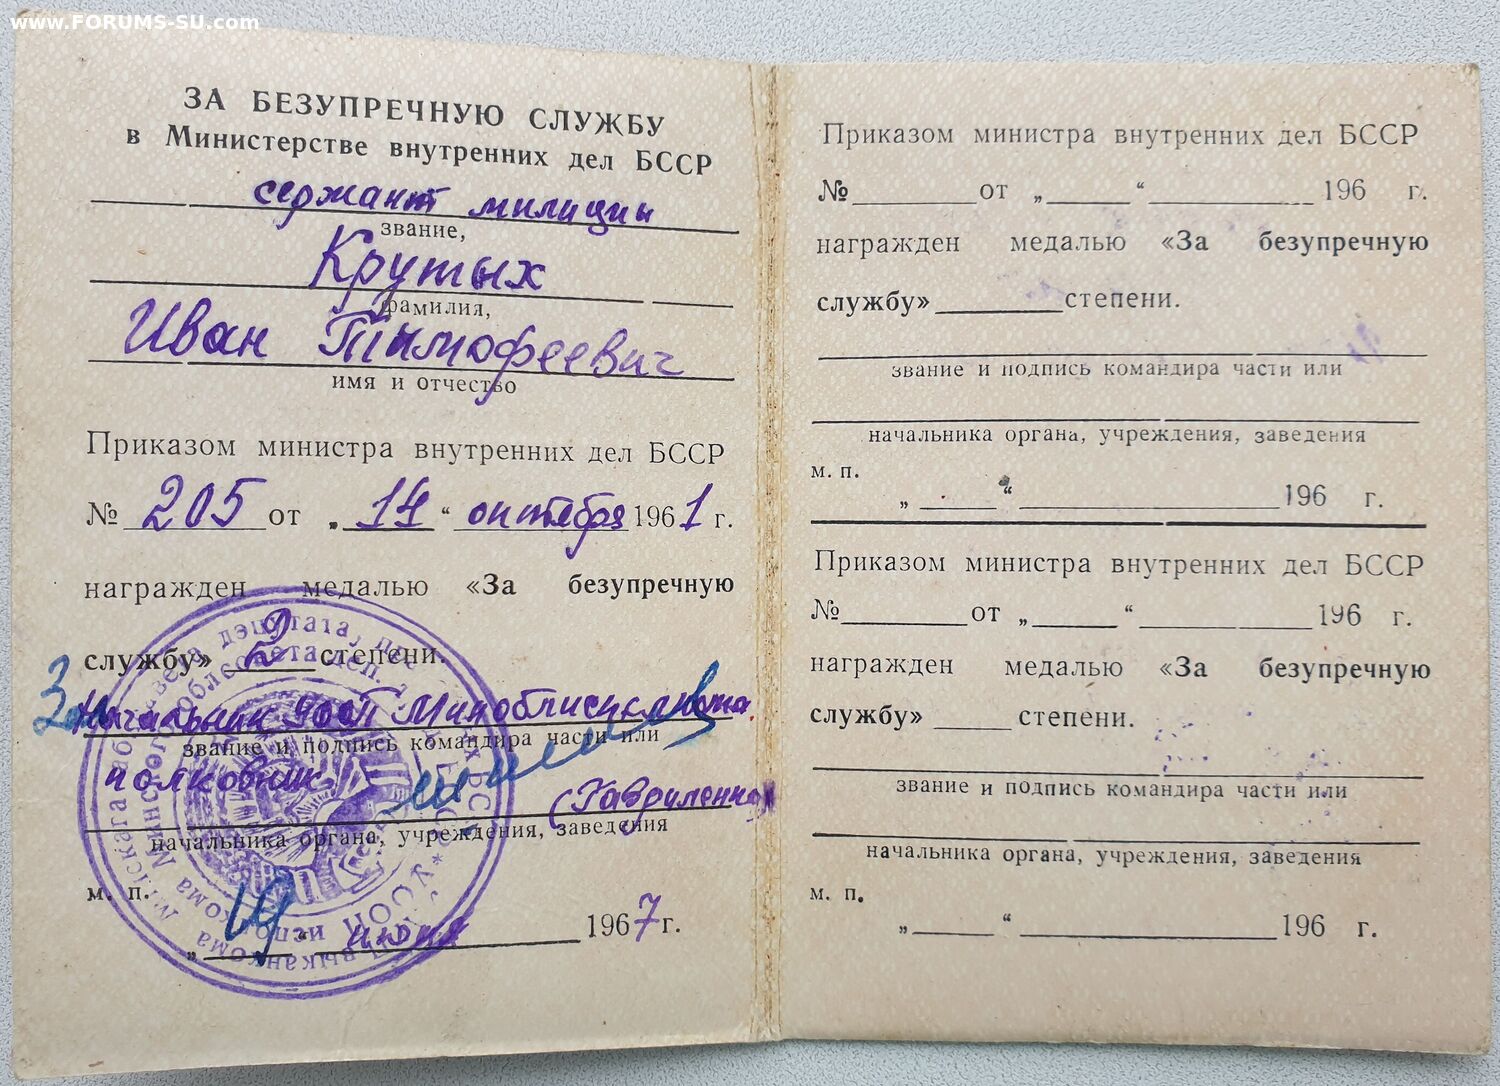 www.FORUMS-SU.com
ЗА БЕЗУПРЕЧНУЮ СЛУЖБУ
в Министерстве внутренних дел БССР
сержант милиции
звание,
Крутых
фамилия,
Иван Тимофеевич
имя и отчество
Приказом министра внутренних дел БССР
№ 205 от „ 14 “ октября 1961 г.
награжден медалью «За безупречную
службу» 2 степени.
Зам Начальник УООП Миноблисполкома
звание и подпись командира части или
полковник (Гавриленко)
начальника органа, учреждения, заведения
м. п.
„ 19 “ июня 1967 г.
Приказом министра внутренних дел БССР
№ от „ “ 196 г.
награжден медалью «За безупречную
службу» степени.
звание и подпись командира части или
начальника органа, учреждения, заведения
м. п.
„ “ 196 г.
Приказом министра внутренних дел БССР
№ от „ “ 196 г.
награжден медалью «За безупречную
службу» степени.
звание и подпись командира части или
начальника органа, учреждения, заведения
м. п.
„ “ 196 г.